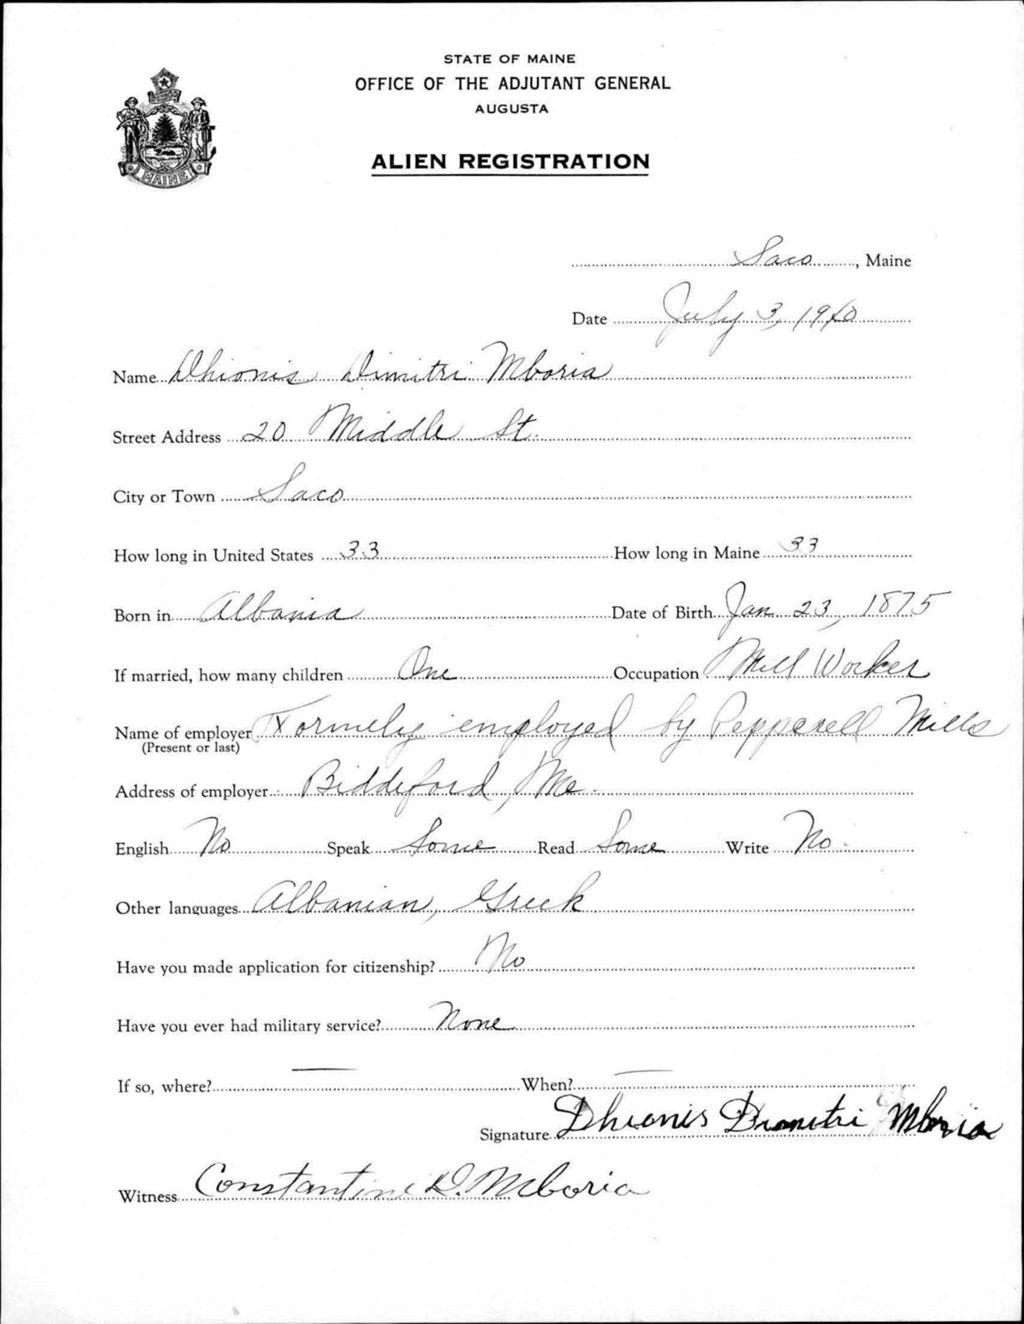 STATE OF MAINE
OFFICE OF THE ADJUTANT GENERAL
AUGUSTA
ALIEN REGISTRATION
MAINE
Saco, Maine
Date July 3, 1940
Name Dhionis Dimitri Mboria
Street Address 20 Middle St.
City or Town Saco
How long in United States 33 How long in Maine 33
Born in Albania Date of Birth Jan. 23, 1875
If married, how many children One Occupation Mill Worker
Name of employer Formely employed by Pepperell Mills
(Present or last)
Address of employer Biddeford, Me.
English No Speak Some Read Some Write No.
Other languages Albanian, Greek
Have you made application for citizenship? No
Have you ever had military service? None
If so, where? — When? —
Signature Dhionis Dimitri Mboria
Witness Constantine D. Mboria